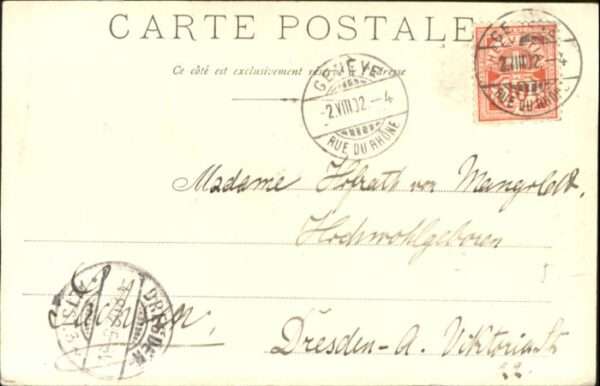 CARTE POSTALE
Ce côté est exclusivement réservé à l'adresse
GENÈVE
2.VIII.02.–4
RUE DU RHÔNE
GENÈVE
2.VIII.02.–4
RUE DU RHÔNE
Madame Hofrath von Mangoldt,
Hochwohlgeboren
DRESDEN
Dresden-A. Viktoriastr.